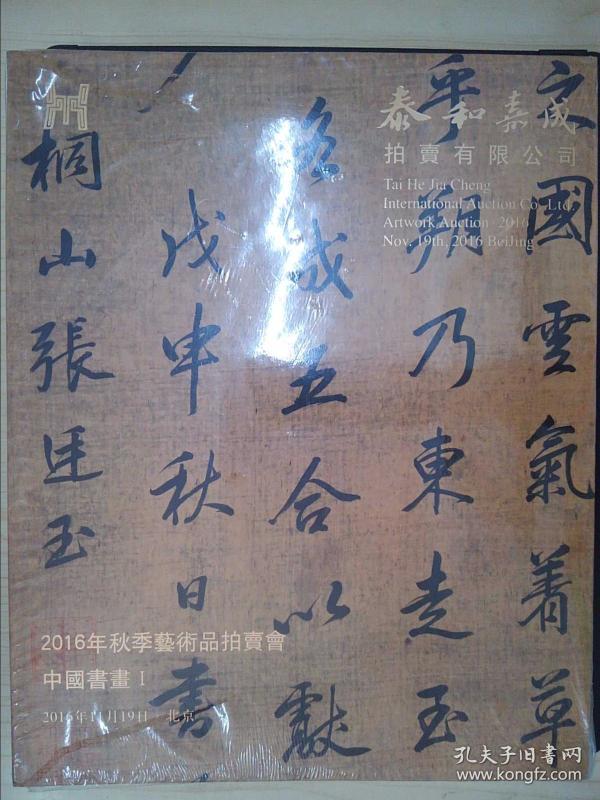 泰和嘉成
拍賣有限公司
Tai He Jia Cheng
International Auction Co., Ltd.
Artwork Auction · 2016
Nov. 19th, 2016 BeiJing
國雲氣着草
乎朔乃東走玉
成五合以獻
戊申秋日書
桐山張廷玉
2016年秋季藝術品拍賣會
中國書畫 I
2016年11月19日 · 北京
孔夫子旧书网
www.kongfz.com